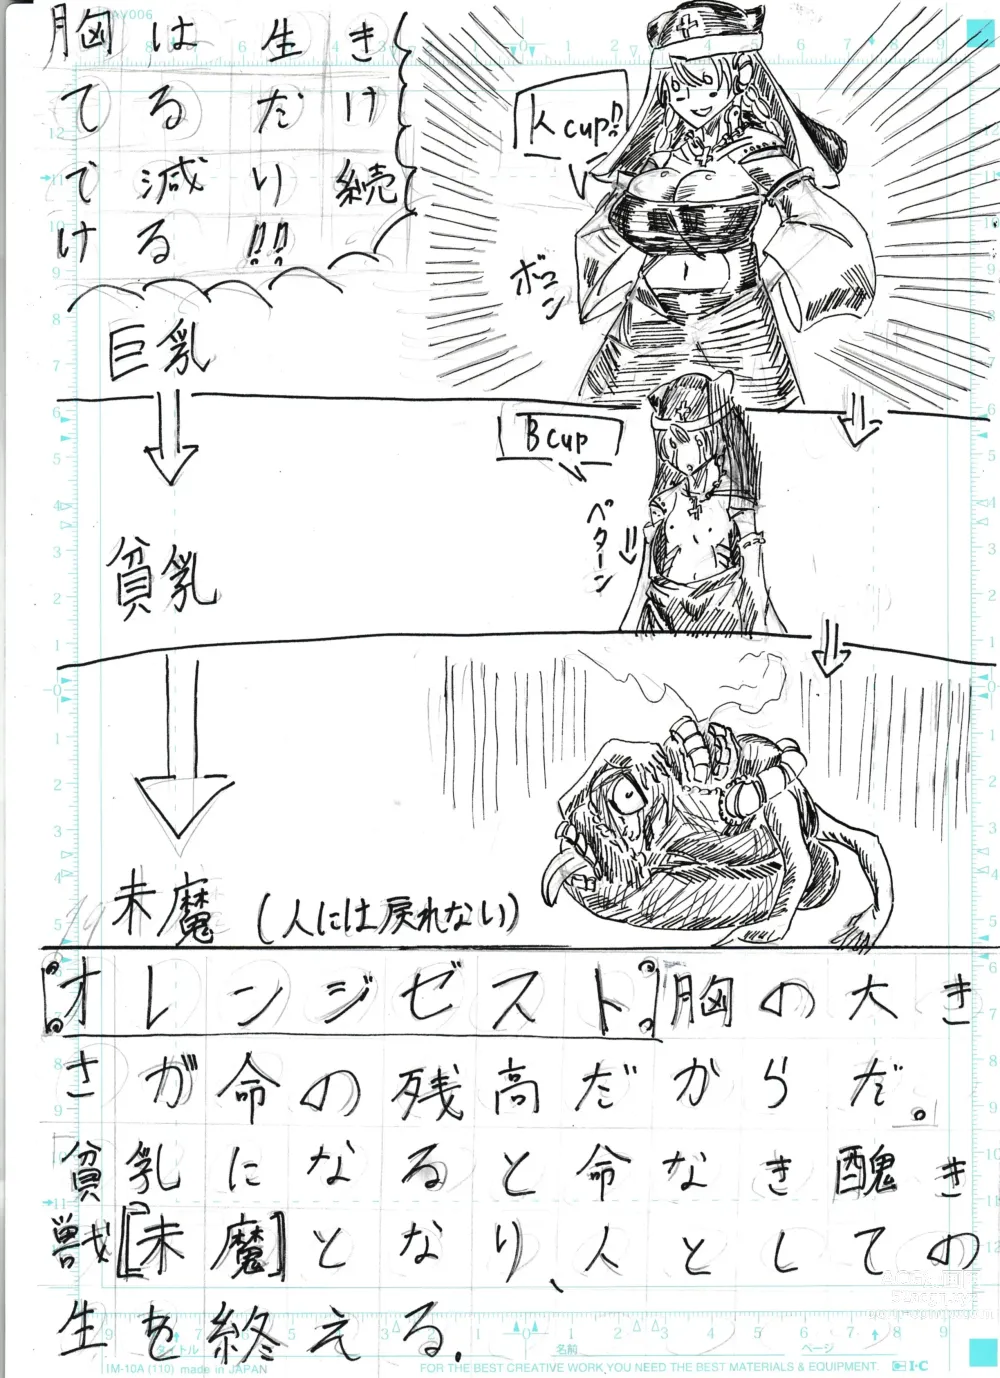 胸は生き
てるだけ
で減り続
ける!!
Kcup!!
ボヨン
巨乳
Bcup
ペターン
貧乳
未魔 (人には戻れない)
『オレンジゼスト』胸の大き
さが命の残高だからだ。
貧乳になると命なき醜き
獣[未魔]となり、人としての
生を終える.
タイトル
名前
ページ
IM-10A (110) made in JAPAN
FOR THE BEST CREATIVE WORK,YOU NEED THE BEST MATERIALS & EQUIPMENT.
I・C